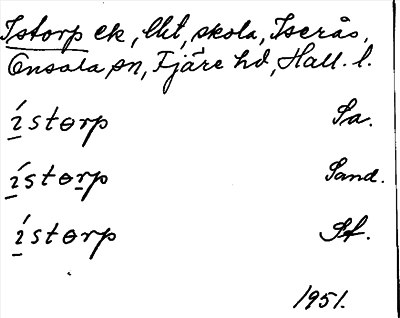 Istorp ek, lht, skola, Iserås,
Onsala sn, Fjäre hd, Hall. l.
ístorp Sa.
ístorp Sand.
ístorp St.
1951.